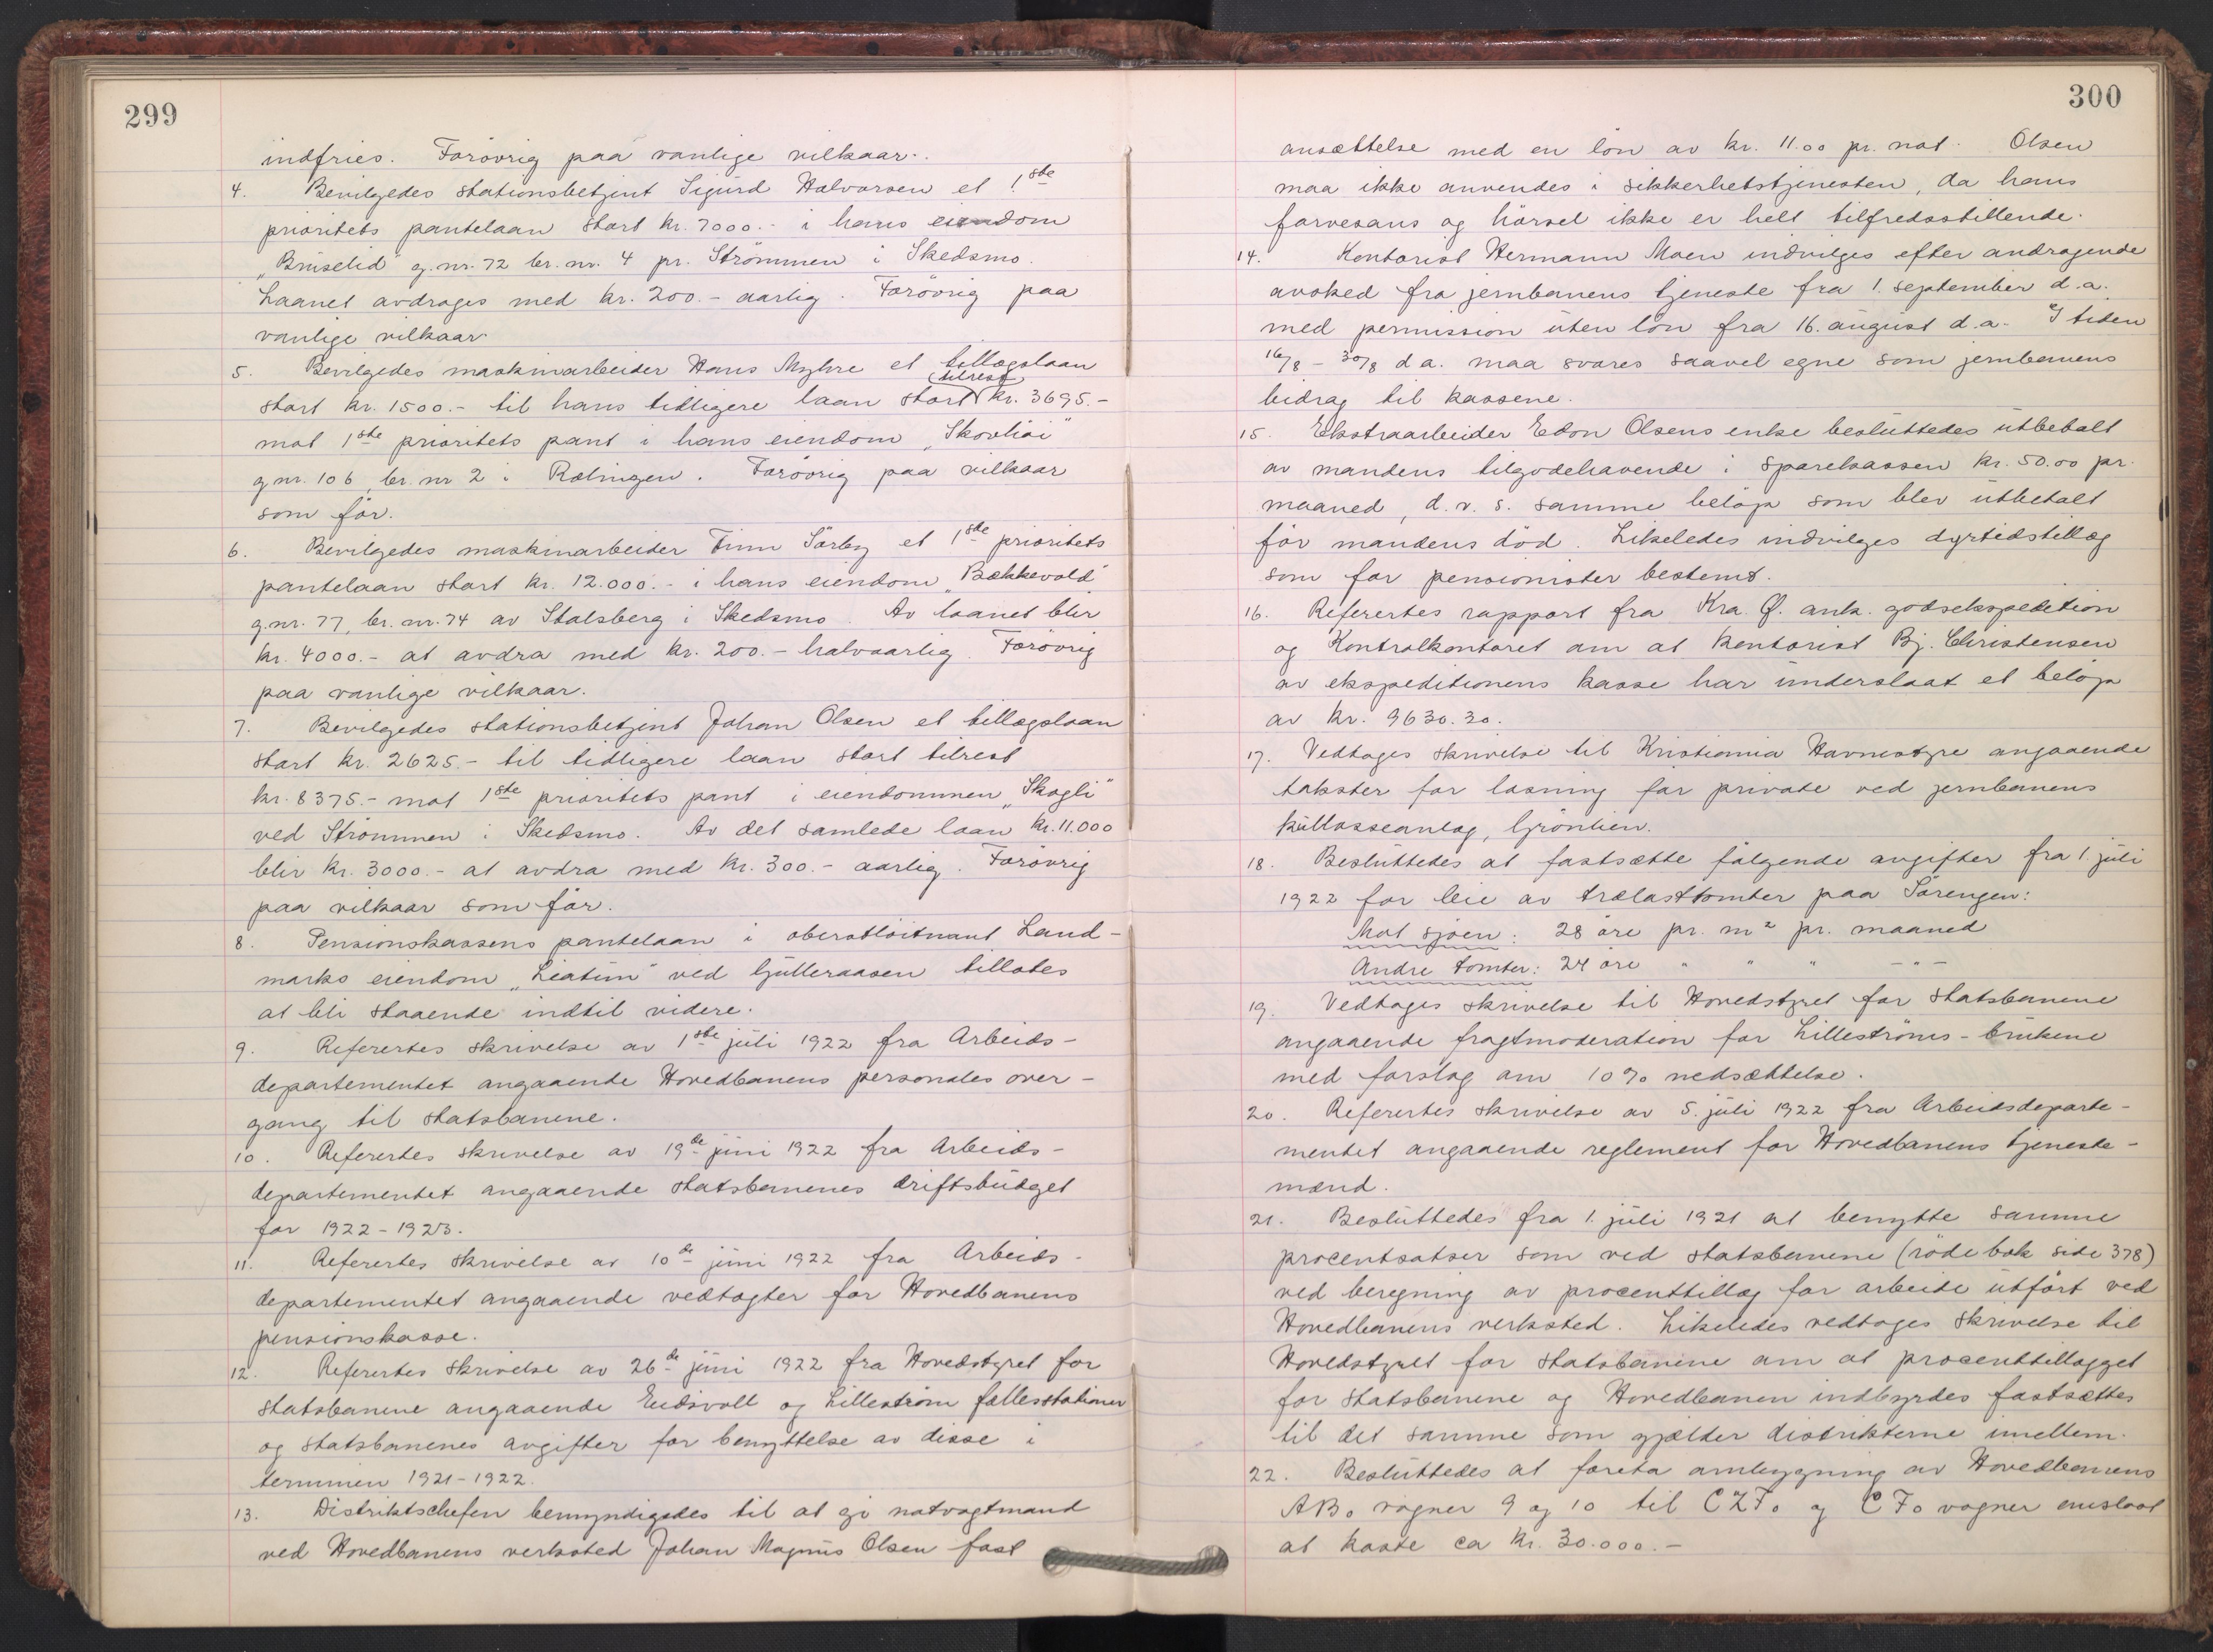 299
indfries. Forövrig paa vanlige vilkaar.
4. Bevilgedes stationsbetjent Sigurd Halvorsen et 1ste
prioritets pantelaan stort kr. 7000.- i hans eiendom
„Bruselid" g.nr. 72 br. nr. 4 pr. Strömmen i Skedsmo.
Laanet avdrages med kr. 200.- aarlig. Forövrig paa
vanlige vilkaar.
5. Bevilgedes maskinarbeider Hans Myhre et tillægslaan
stort kr. 1500.- til hans tidligere laan stort (tilrest) kr. 3695.-
mot 1ste prioritets pant i hans eiendom „Skovhöi"
g.nr. 106, br. nr 2 i Rælingen. Forövrig paa vilkaar
som för.
6. Bevilgedes maskinarbeider Finn Sörby et 1ste prioritets
pantelaan stort kr. 12.000.- i hans eiendom „Bækkevold"
g.nr. 77, br. nr. 74 av Stalsberg i Skedsmo. Av laanet blir
kr. 4000.- at avdra med kr. 200.- halvaarlig. Forövrig
paa vanlige vilkaar.
7. Bevilgedes stationsbetjent Johan Olsen et tillægslaan
stort kr. 2625.- til tidligere laan stort tilrest
kr. 8375.- mot 1ste prioritets pant i eiendommen „Skogli"
ved Strömmen i Skedsmo. Av det samlede laan kr. 11.000
blir kr. 3000.- at avdra med kr. 300.- aarlig. Forövrig
paa vilkaar som för.
8. Pensionskassens pantelaan i oberstlöitnant Land-
marks eiendom „Liatun" ved Gulleraasen tillotes
at bli staaende indtil videre.
9. Refererтes skrivelse av 1ste juli 1922 fra Arbeids-
departementet angaaende Hovedbanens personales over-
gang til statsbanene.
10. Referertes skrivelse av 19de juni 1922 fra Arbeids-
departementet angaaende statsbanenes driftsbudget
for 1922-1923.
11. Referertes skrivelse av 10de juni 1922 fra Arbeids-
departementet angaaende vedtægter for Hovedbanens
pensionskasse.
12. Referertes skrivelse av 26de juni 1922 fra Hovedstyret for
statsbanene angaaende Eidsvoll og Lilleström fællesstationer
og statsbanenes avgifter for benyttelse av disse i
terminen 1921-1922.
13. Distriktschefen bemyndigedes til at gi natvagtmand
ved Hovedbanens verksted Johan Magnus Olsen fast
300
ansættelse med en lön av kr. 11.00 pr. nat. Olsen
maa ikke anvendes i sikkerhetstjenesten, da hans
farvesans og hörsel ikke er helt tilfredsstillende.
14. Kontorist Hermann Moen indvilges efter andragende
avsked fra jernbanens tjeneste fra 1. september d.a.
med permission uten lön fra 16. august d.a. I tiden
16/8 - 30/8 d.a. maa svares saavel egne som jernbanens
bidrag til kassene.
15. Ekstraarbeider Edon Olsens enke besluttedes utbetalt
av mandens tilgodehavende i sparekassen kr. 50.00 pr.
maaned, d.v.s. samme belöp som blev utbetalt
för mandens död. Likeledes indvilges dyrtidstillæg
som for pensionister bestemt.
16. Referertes rapport fra Kra. Ø. ank. godsekspedition
og Kontrolkontoret om at kontorist Bj. Christensen
av ekspeditionens kasse har underslaat et belöp
av kr. 9630.30.
17. Vedtoges skrivelse til Kristiania Havnestyre angaaende
takster for losning for private ved jernbanens
kullosseanlæg, Grönlien.
18. Besluttedes at fastsætte fölgende avgifter fra 1. juli
1922 for leie av trælasttomter paa Sörengen:
Mot sjöen: 28 öre pr. m² pr. maaned
Andre tomter: 24 öre " " " -"-
19. Vedtoges skrivelse til Hovedstyret for statsbanene
angaaende fragtmoderation for Lilleströms-brukene
med forslag om 10% nedsættelse.
20. Referertes skrivelse av 5. juli 1922 fra Arbeidsdeparte-
mentet angaaende reglement for Hovedbanens tjeneste-
mænd.
21. Besluttedes fra 1. juli 1921 at benytte samme
procentsatser som ved statsbanene (röde bok side 378)
ved beregning av procenttillæg for arbeide utfört ved
Hovedbanens verksted. Likeledes vedtoges skrivelse til
Hovedstyret for statsbanene om at procenttillægget
for statsbanene og Hovedbanen indbyrdes fastsættes
til det samme som gjælder distrikterne imellem.
22. Besluttedes at foreta ombygning av Hovedbanens
ABo vogner 9 og 10 til CZFo og CFo vogner anslaat
at koste ca kr. 30.000.-